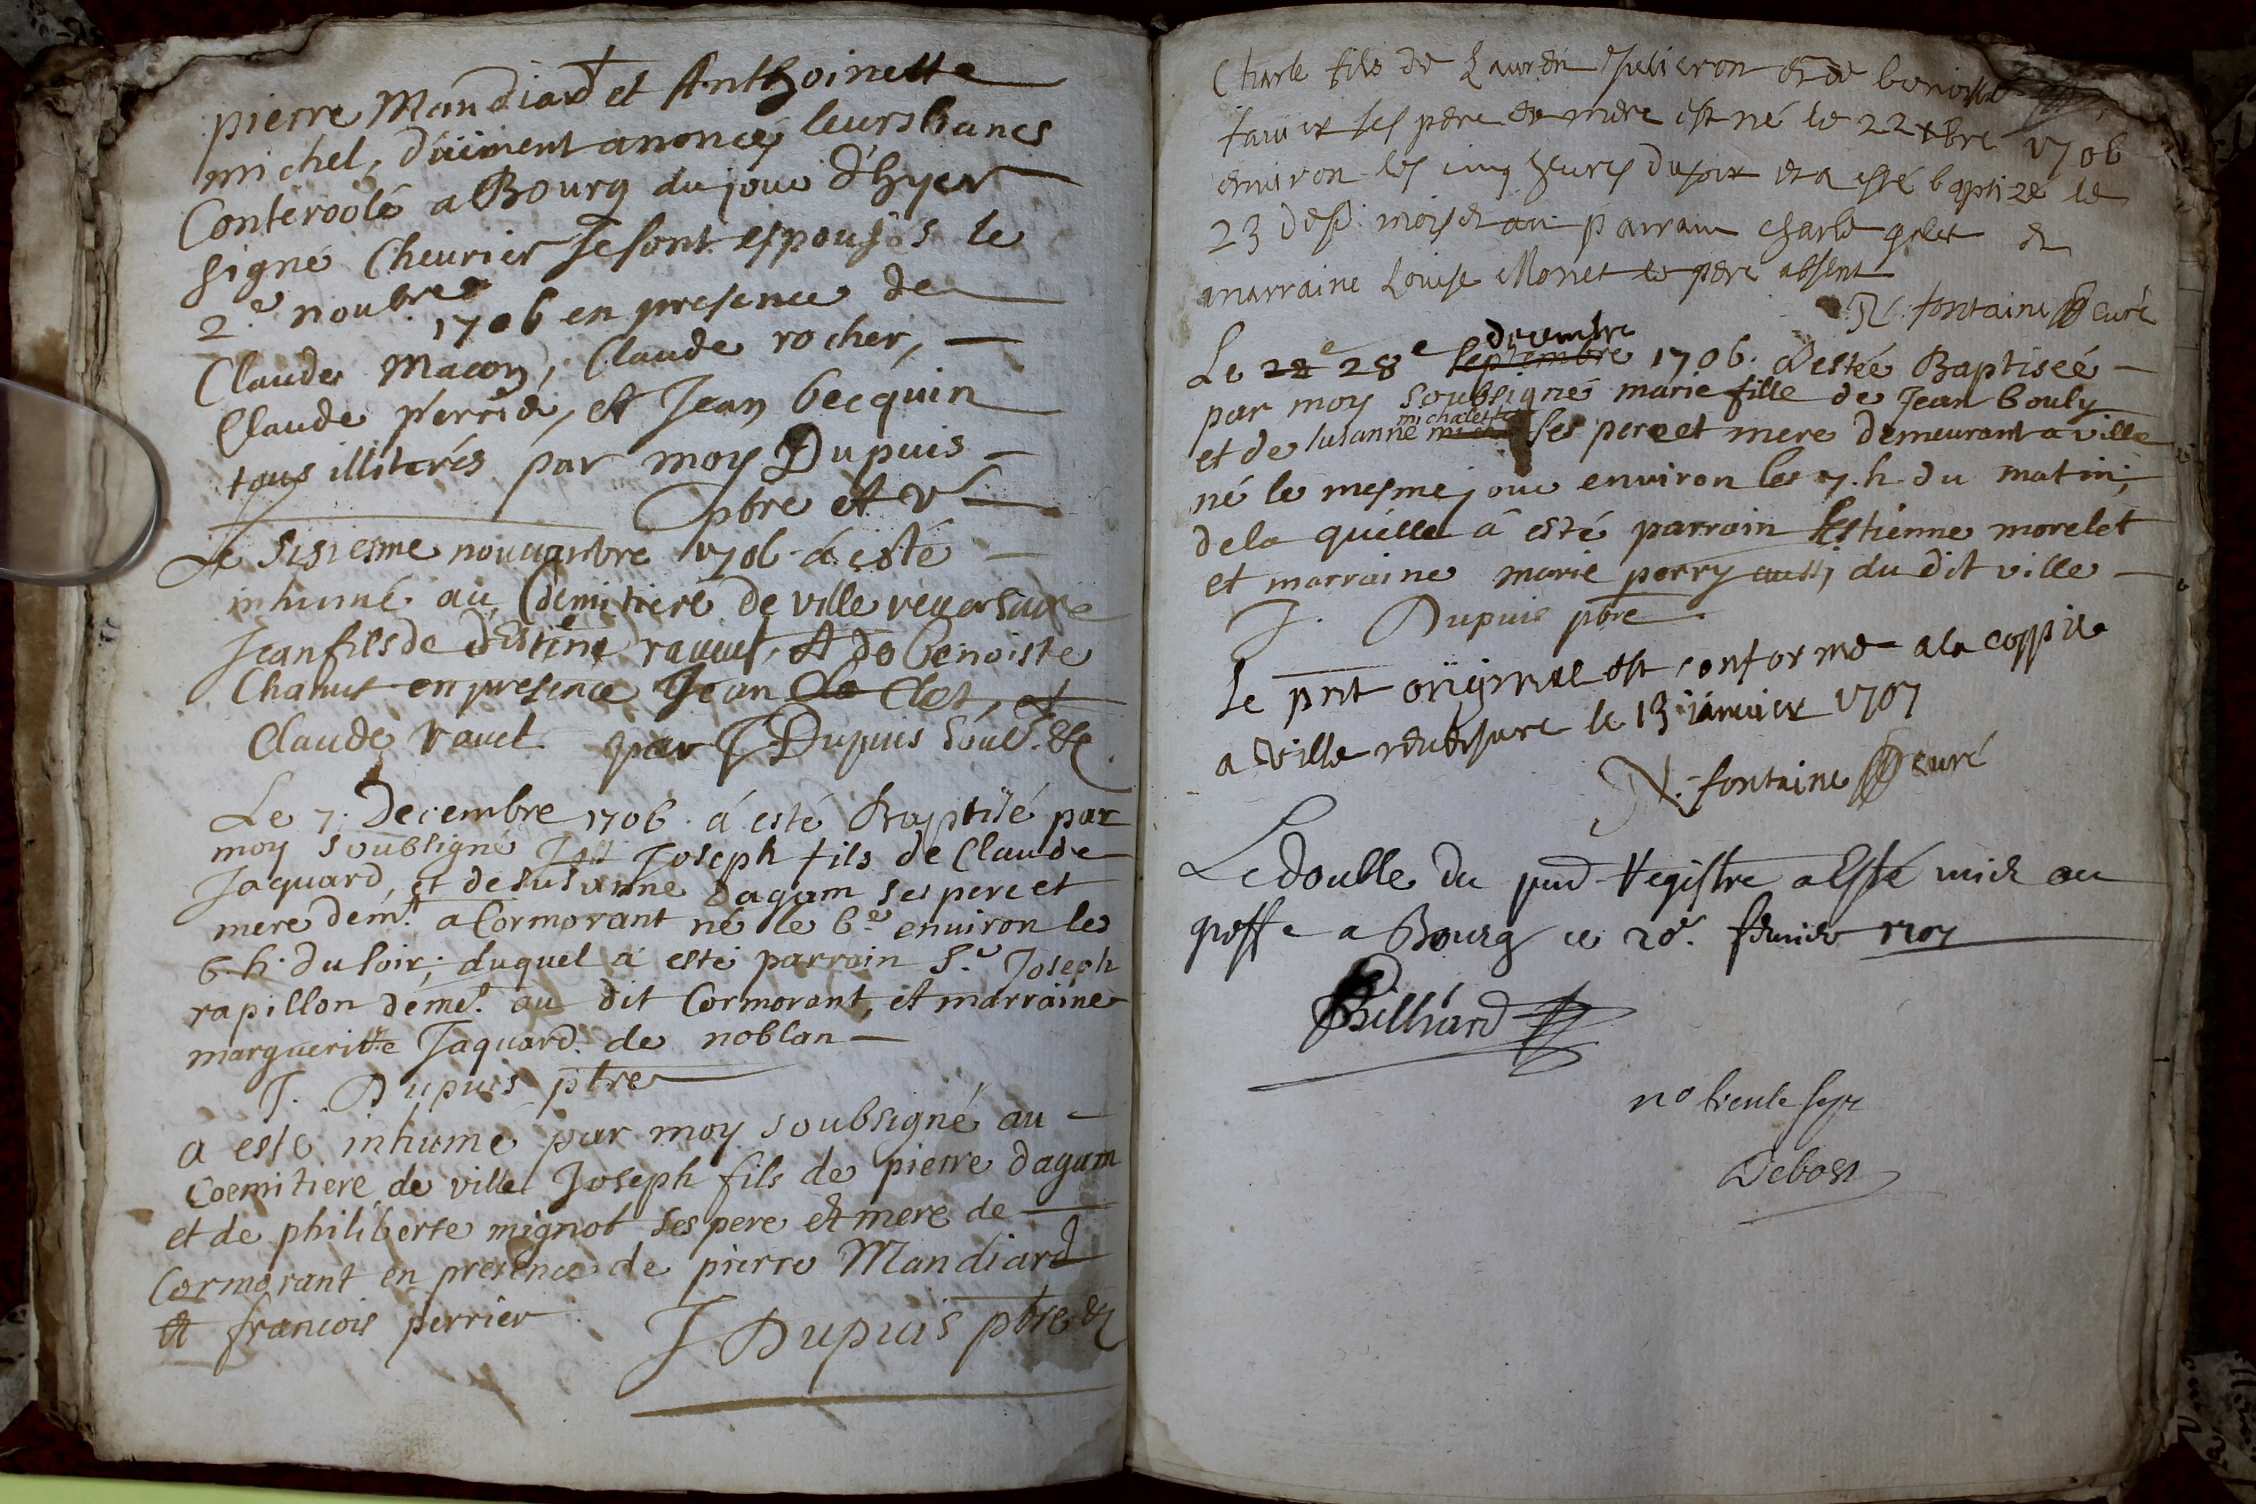 pierre Mandiard et Anthoinette
michel, düiment anoncéz leurs bancs
Conteroolé a Bourg du jour d'hyer
signé Cheurier se sont espousés le
2.e noubre 1706 en presence de
Claude Macon, Claude rocher,
Claude perrié, et Jean becquin
tous illiterés par moy Dupuis
pbre et v
Le sisiesme nouuambre 1706 á esté
inhumé au Cemitiere de ville reuersure
Jean fils de Estine rauuet, et de benoiste
Chanut en presence Jean Clet, et
Claude rauet par J Dupuis
Le 7. Decembre 1706 á esté Baptisé par
moy soubsigné Joseph fils de Claude
Jaquard, et de susanne dagam ses pere et
mere demt. a Cormorant né le 6e environ les
6. h. du soir; duquel á esté parrain Sr. Joseph
rapillon deme.t au dit Cormorant, et marraine
margueritte Jaquard de noblan
J. Dupuis ptre
a esté inhumé par moy soubsigné au
Coemitiere de ville Joseph fils de pierre dagam
et de philiberte mignot ses pere et mere de
Cormorant en presence de pierre Mandiard
et francois perrier
J Dupuis pbre
Charle fils de Laurent Julieron et de benoiste
fauier ses pere et mere est né le 22 xbre 1706
environ les cinq heures du soir et a esté baptizé le
23 desd. mois et an parrain charle gelet et
marraine Louise Monet le pere absent
N. fontaine curé
decembre
Le 22e 28e septembre 1706. a estée Baptiseé
par moy soubsigné marie fille de Jean bouly
michalet
et de susanne ses pere et mere demeurant a ville
né le mesme jour environ les 7. h. du matin;
de la quelle â esté parrain Estienne morelet
et marraine marie perry aussi du dit ville
J. Dupuis pbre
Le pnt original est conforme a la coppie
a Ville reversure le 13 janvier 1707
N. fontaine curé
Le double du pnt Registre a Esté mis au
greffe a Bourg ce 20e. feurier 1707
Billiard
no trente sept
Debost